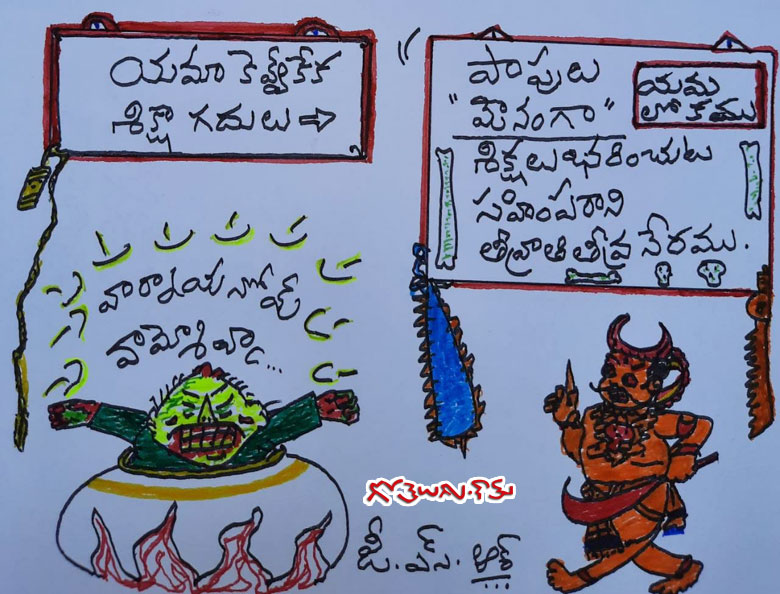 యమా కెవ్వేకేక
శిక్షా గదులు ⇒
పాపులు
"మౌనంగా"
యమ
లోకము
శిక్షలు భరించుట
సహింపరాని
తీవ్రాతి తీవ్ర నేరము.
వామ్మోశిఖ్మా...
గోతెలుగు.కామ్
జీ.ఎస్.